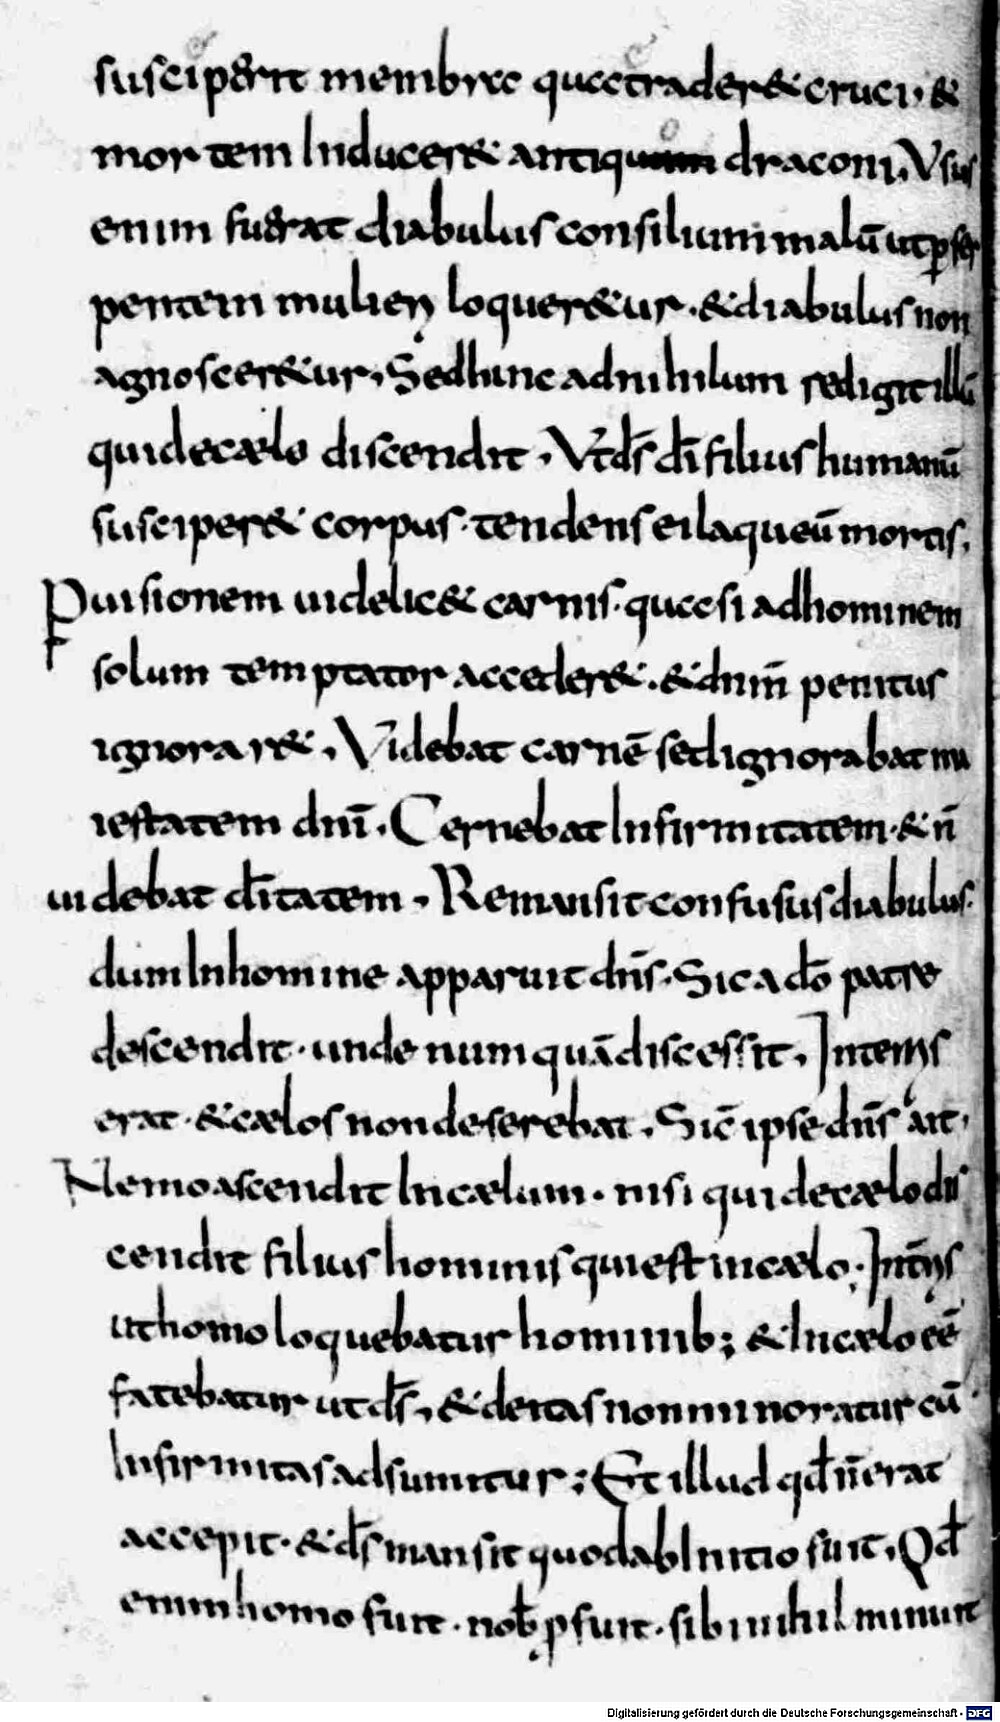 suscip&rit membra quae trader& cruci, &
mortem Inducer& antiquum draconi, Usus
enim fuerat diabulus consilium malū ut p ser
pentem mulieri loquer&ur. & diabulus non
agnoscer&ur, Sed hunc ad nihilum redigit illū
qui de cælo discendit, Ut d̄s d̄i filius humanū
susciper& corpus. tendens ei laqueū mortis,
Puisionem uidelic& carnis. quasi ad hominem
solum temptator acceder&. & dnm̄ penitus
ignorar&, Videbat carnē sed ignorabat ma
iestatem dnī. Cernebat Infirmitatem. & n̄
uidebat d̄itatem, Remansit confusus diabulus.
dum In homine apparuit dn̄s. Sic a dō patre
descendit. unde numquā discessit, In terris
erat. & cælos non deserebat, Sic̄ ipse dn̄s ait,
Nemo ascendit In cælum. nisi qui de cælo dis
cendit filius hominis qui est in cælo. In terris
ut homo loquebatur hominib; & In cælo eē
fatebatur ut d̄s, & deitas non minoratur cū
Infirmitas adsumitur; Et illud qd̄ n̄ erat
accepit. & d̄s mansit quod ab Initio fuit, Qd̄
enim homo fuit. nob̄ p fuit. sibi nihil minuit